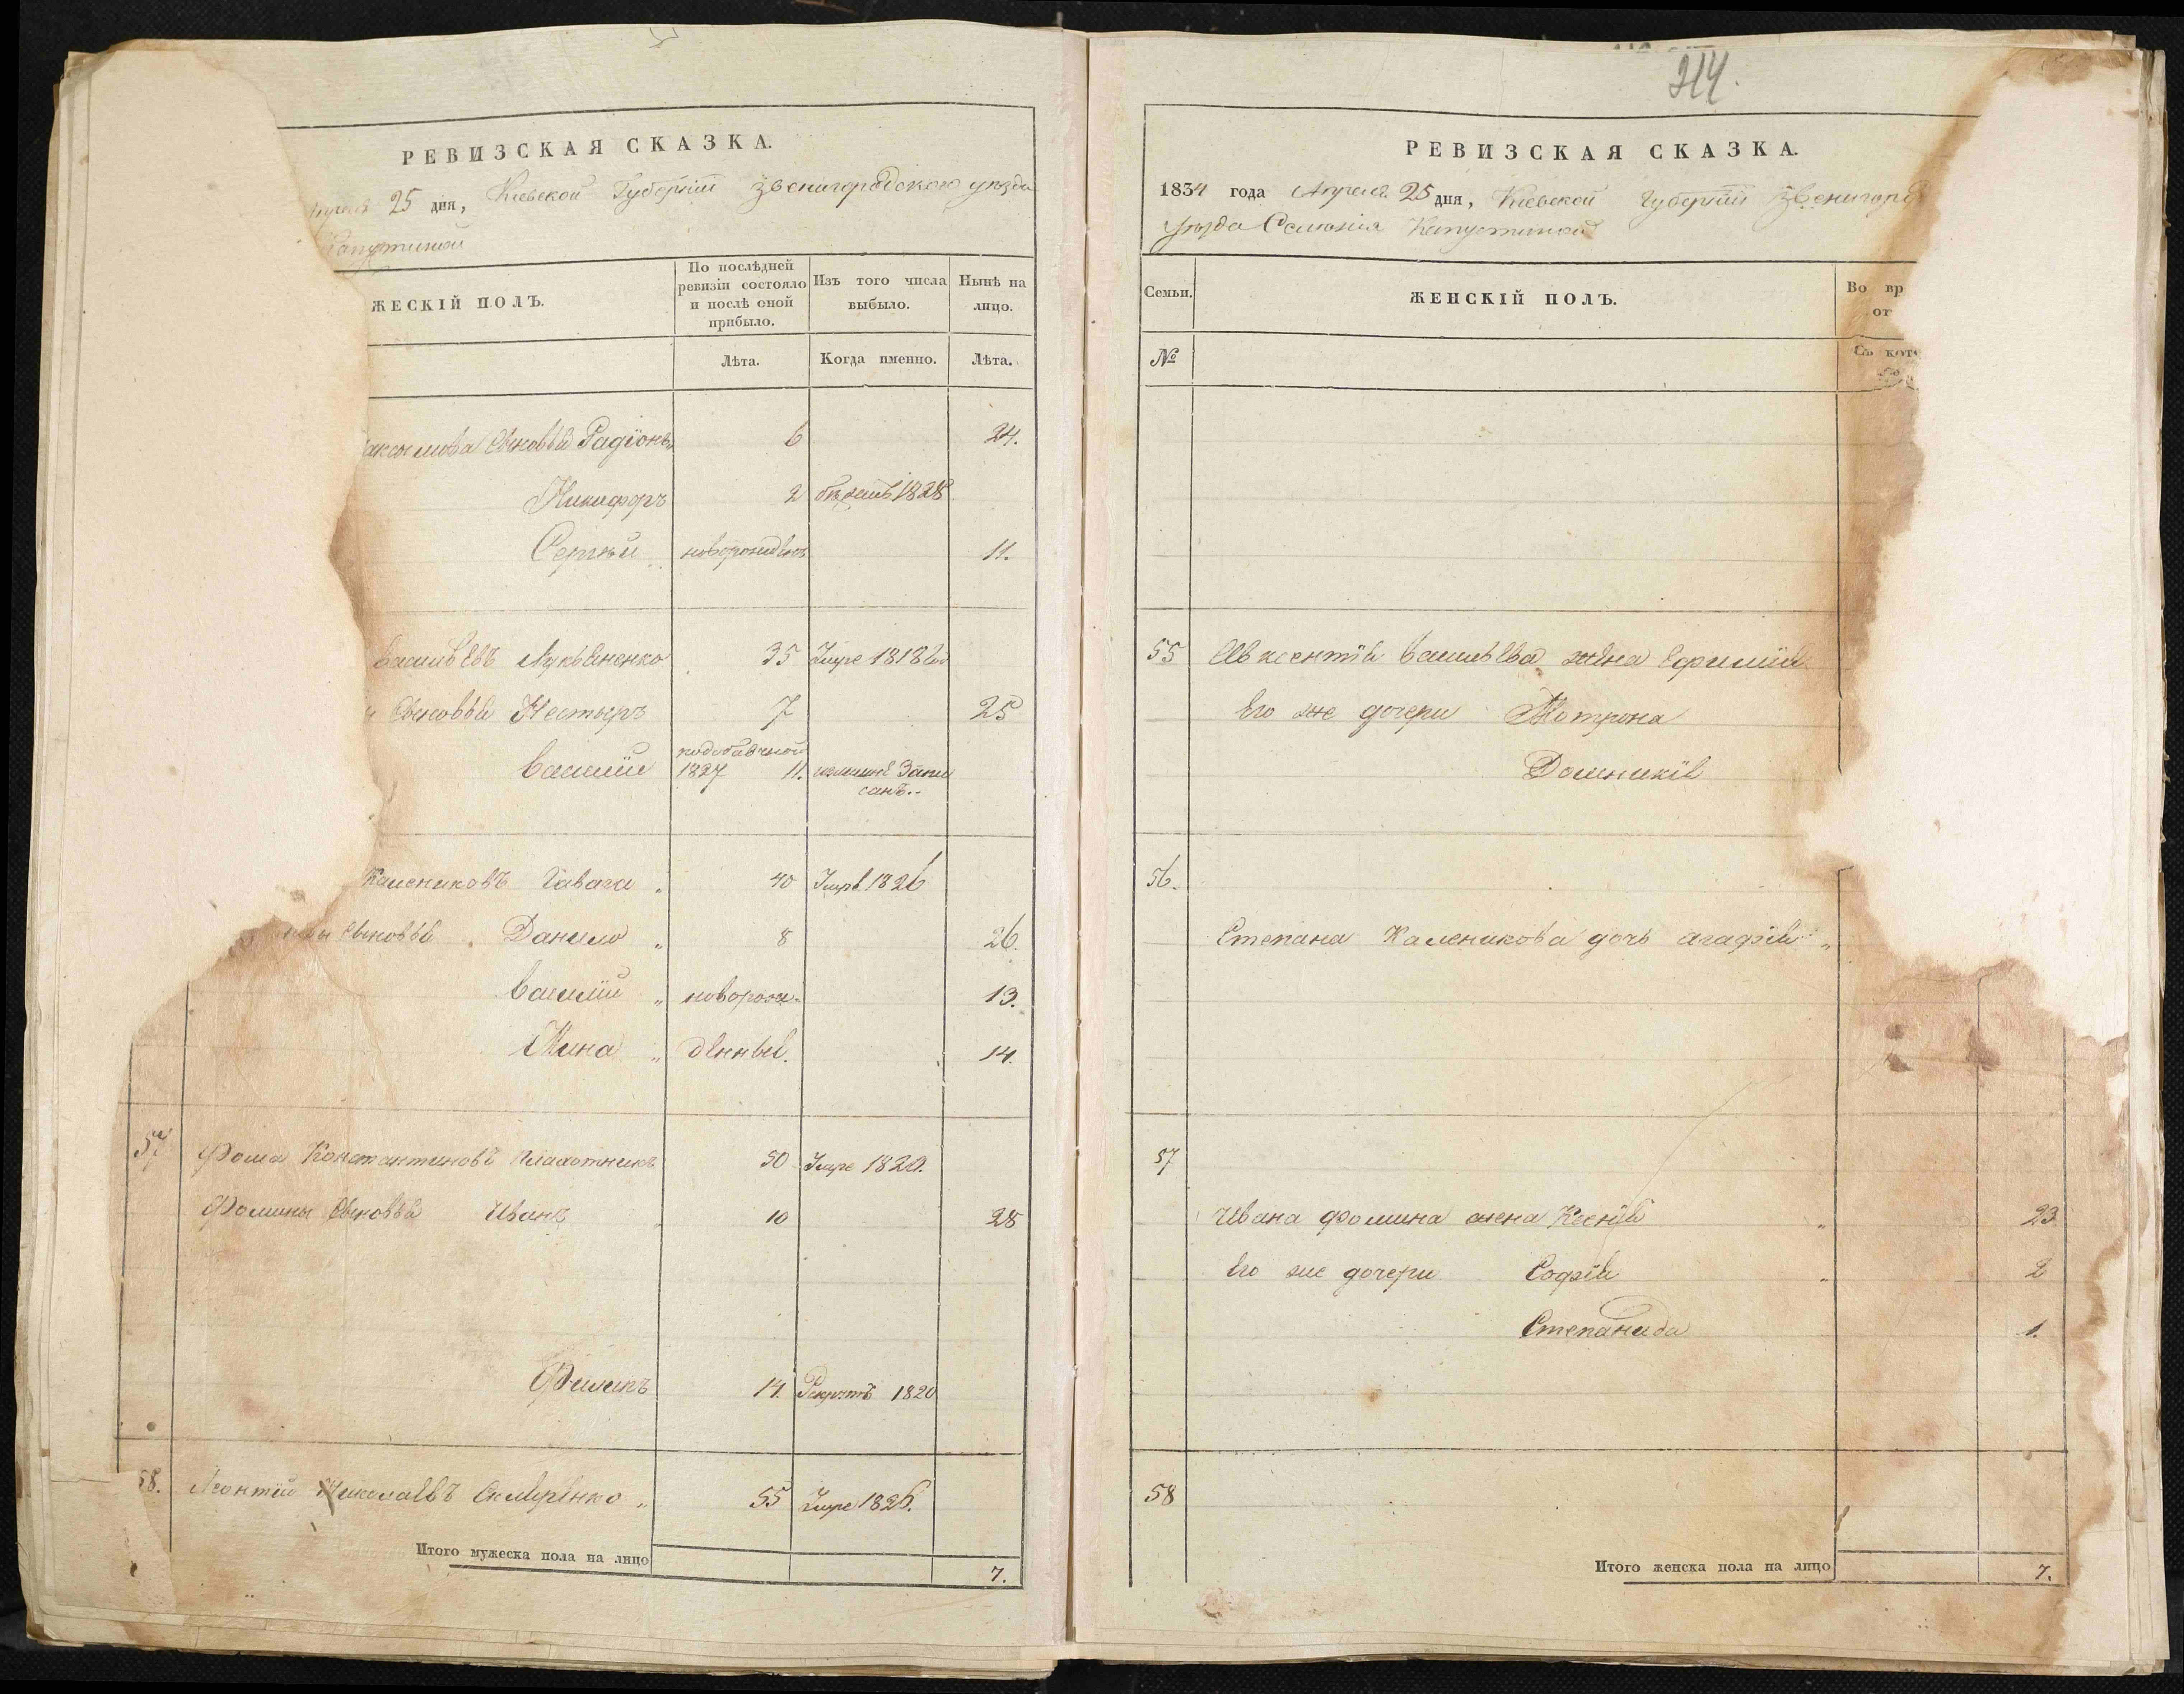 РЕВИЗСКАЯ СКАЗКА.
25 дня, Кіевской Губерніи Звенигородского уѣзда
Капустиной
ЖЕСКІЙ ПОЛЪ.
По послѣдней ревизіи состояло и послѣ оной прибыло.
Изъ того числа выбыло.
Нынѣ на лицо.
Лѣта.
Когда именно.
Лѣта.
аксимова Сыновья Радіонъ 6 24.
Никифоръ 2 бѣжалъ 1828
Сергѣй новорожденъ 11.
Васильевъ Лукьяненко 35 Умре 1818
Сыновья Нестыръ 7 25
Василій 1827 11. Запи
санъ..
Калениковъ 40 Умре 1826
Сыновья Данило „ 8 26.
Василій „ новорож- 13.
Мина „ денные. 14.
57 Фома Константиновъ Плахотникъ 50 Умре 1820.
Фомины Сыновья Иванъ 10 28
Филипъ 14. Рекрутъ 1820
58. Леонтій Николаевъ „ 55 Умре 1826.
Итого мужеска пола на лицо 7.
214.
РЕВИЗСКАЯ СКАЗКА.
1834 года Апреля 25 дня, Кіевской Губерніи Звенигород
уѣзда Селенія Капустиной
Семьи.
ЖЕНСКІЙ ПОЛЪ.
Во вр
от
№
Съ кото
55 Авксентія Васильева жена Ефимія
Его же дочери Мотрона
Домникія
56.
Степана Каленикова дочь агафія „
57
Ивана Фомина жена Ксенія „ 23
Его же дочери Софія „ 2
Степанида 1.
58
Итого женска пола на лицо 7.